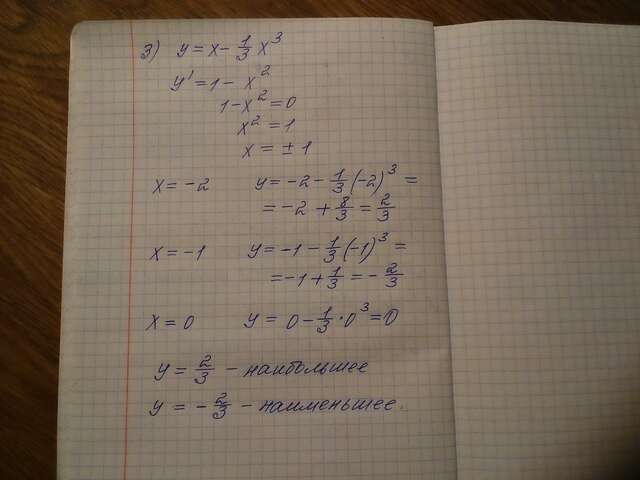 3) y = x - 1/3 x³
y' = 1 - x²
1 - x² = 0
x² = 1
x = ± 1
x = -2 y = -2 - 1/3 (-2)³ =
= -2 + 8/3 = 2/3
x = -1 y = -1 - 1/3 (-1)³ =
= -1 + 1/3 = - 2/3
x = 0 y = 0 - 1/3 · 0³ = 0
y = 2/3 - наибольшее
y = - 2/3 - наименьшее.